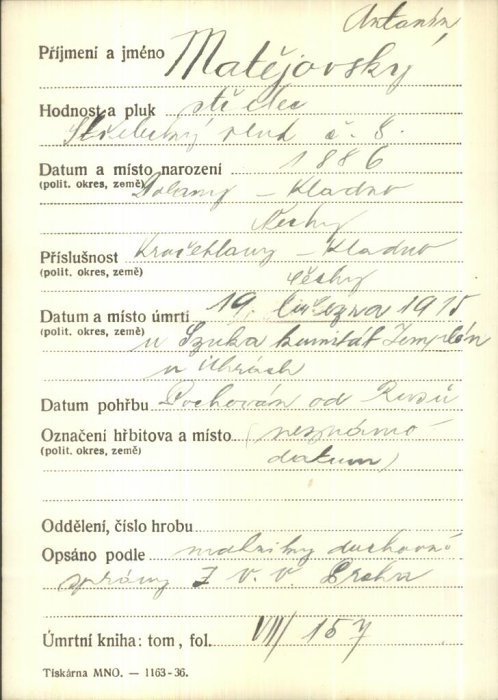 Antonín
Příjmení a jméno Matějovský
Hodnost a pluk střelec
Střelecký pluk č. 8.
Datum a místo narození 1886
(polit. okres, země) Dolany – Kladno
Čechy
Příslušnost Kročehlavy – Kladno
(polit. okres, země) Čechy
Datum a místo úmrtí 19. března 1915
(polit. okres, země) u Szuka komitát Zemplén
v Uhrách
Datum pohřbu Pochován od Rusů
Označení hřbitova a místo (neznámo
(polit. okres, země) datum)
Oddělení, číslo hrobu
Opsáno podle matriky duchovní
správy Z. V. V. Praha
Úmrtní kniha: tom, fol. VIII/157
Tiskárna MNO. — 1163-36.